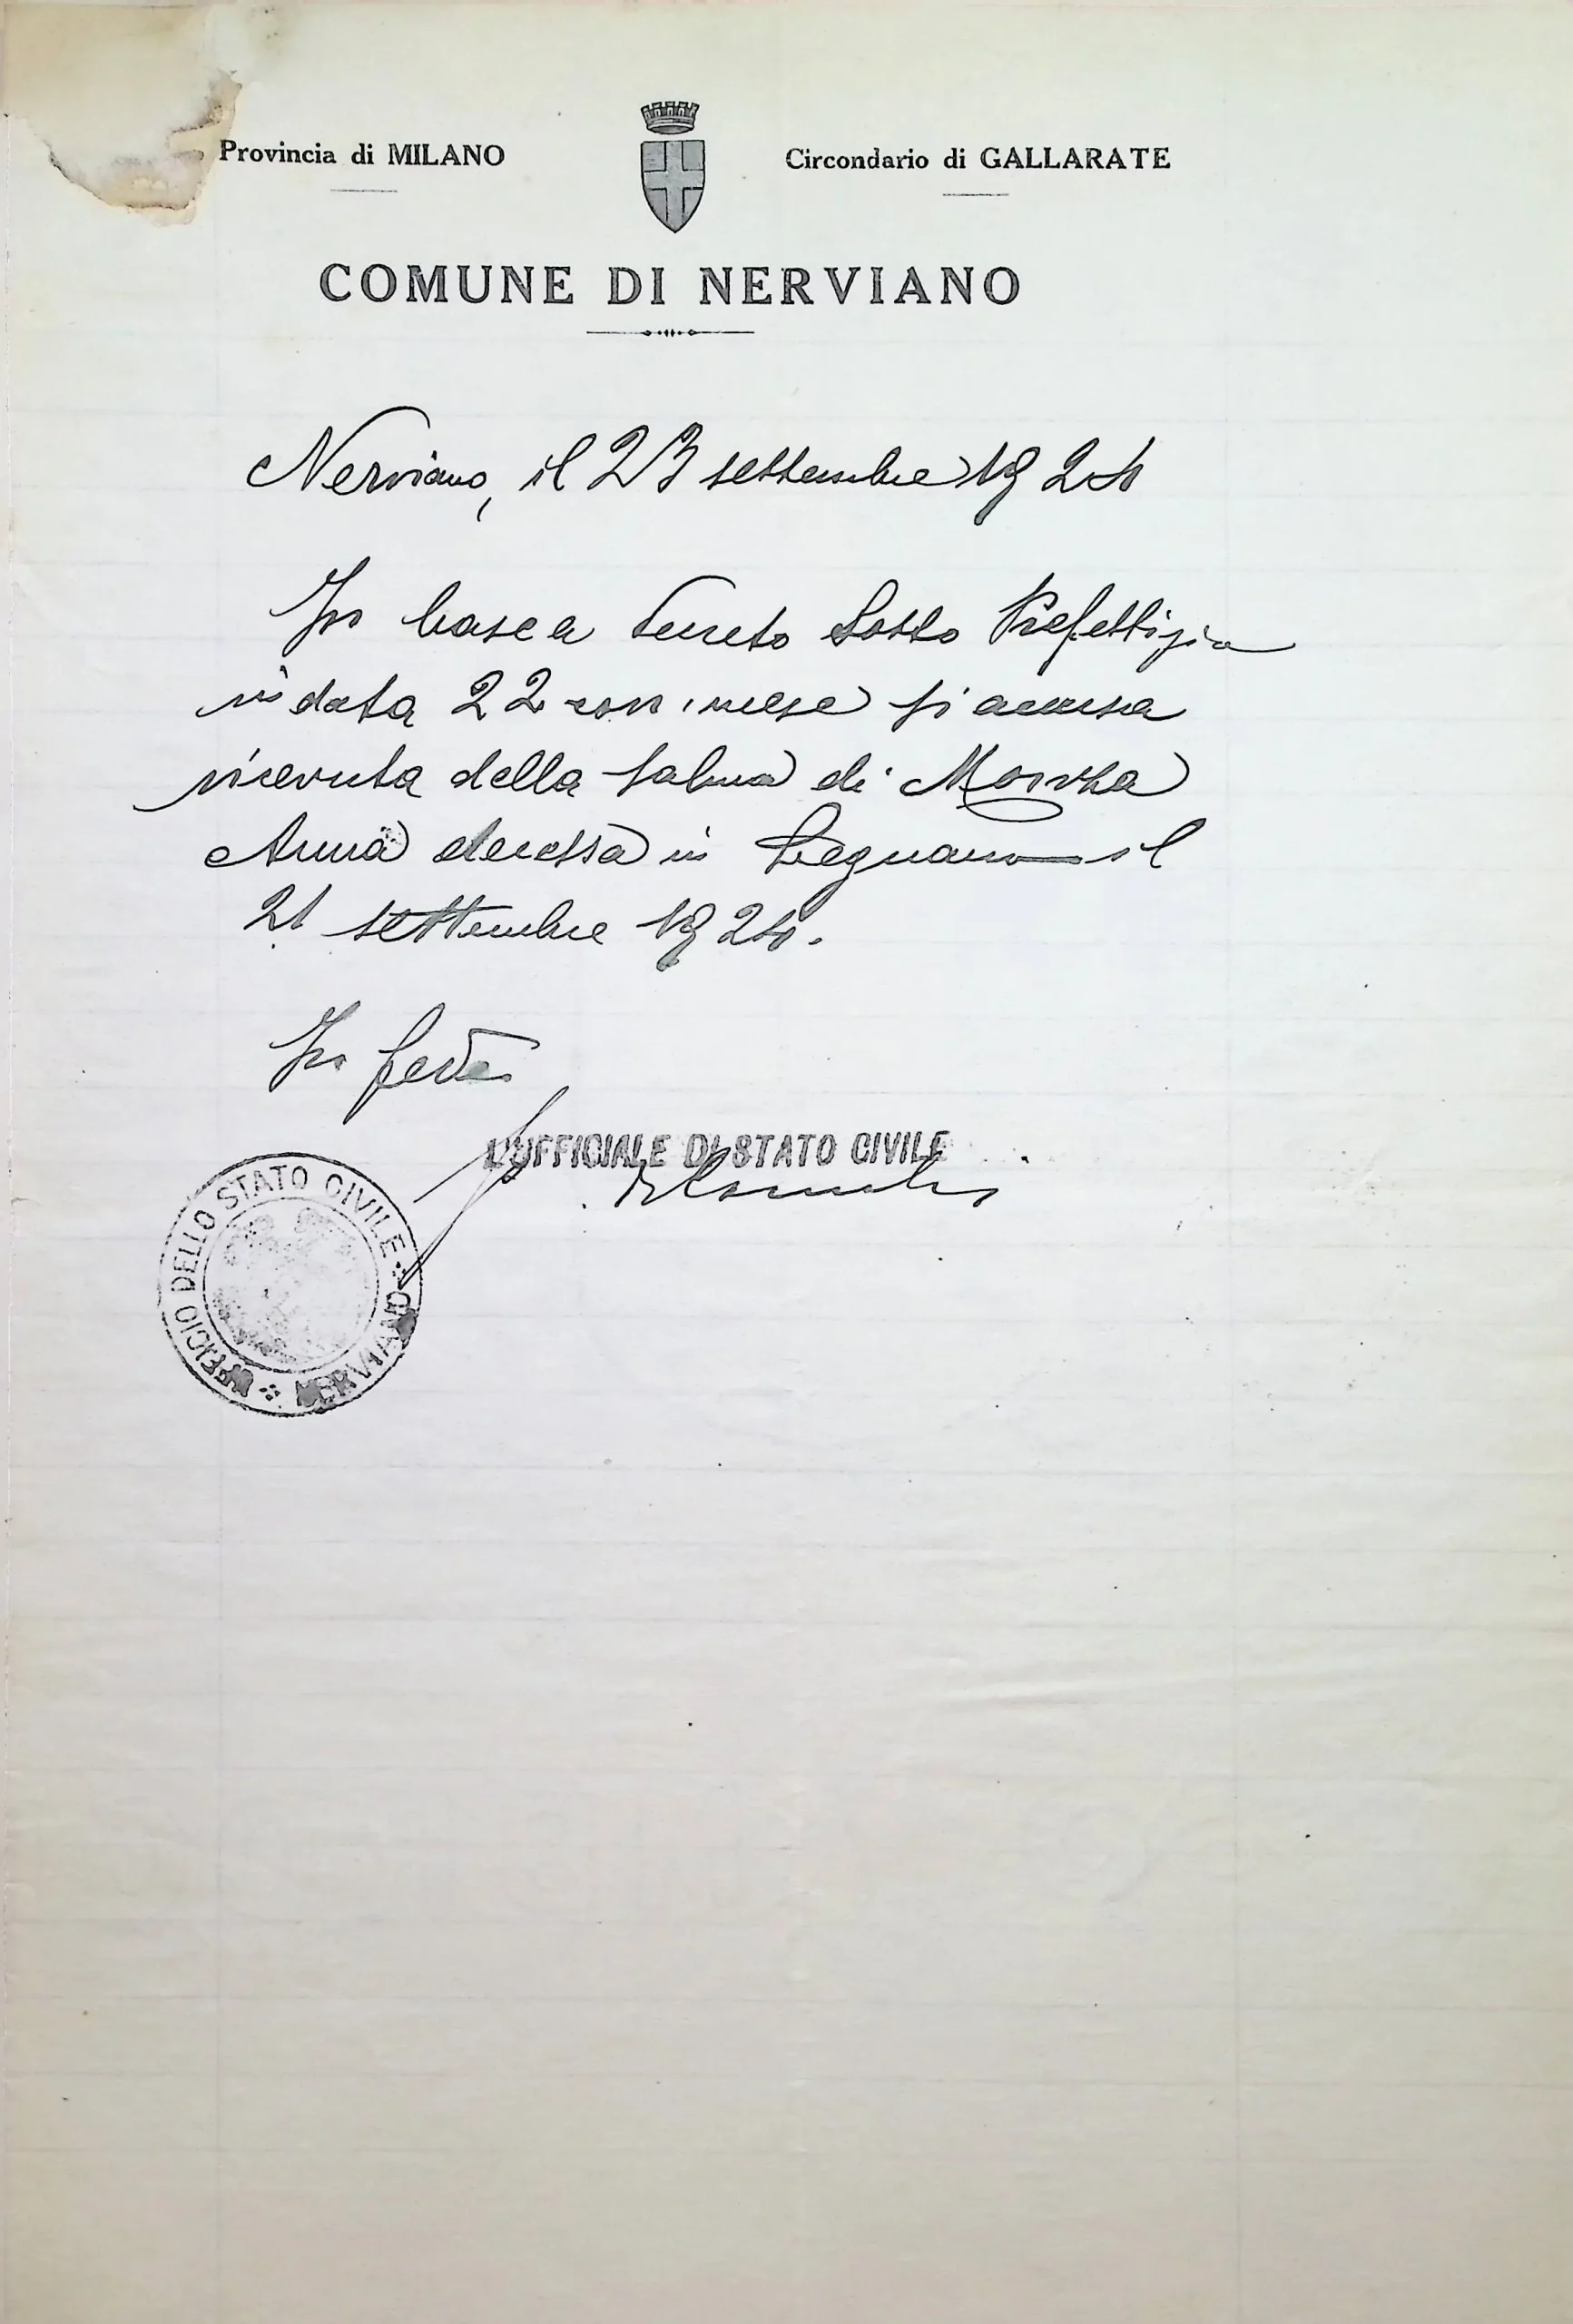 Provincia di MILANO
Circondario di GALLARATE
COMUNE DI NERVIANO
Nerviano, il 23 settembre 1924
In base a Decreto Sotto Prefettizio
in data 22 corr. mese si accusa
ricevuta della salma di
Anna decessa in Legnano il
21 settembre 1924.
In fede
L'UFFICIALE DI STATO CIVILE
UFFICIO DELLO STATO CIVILE
NERVIANO